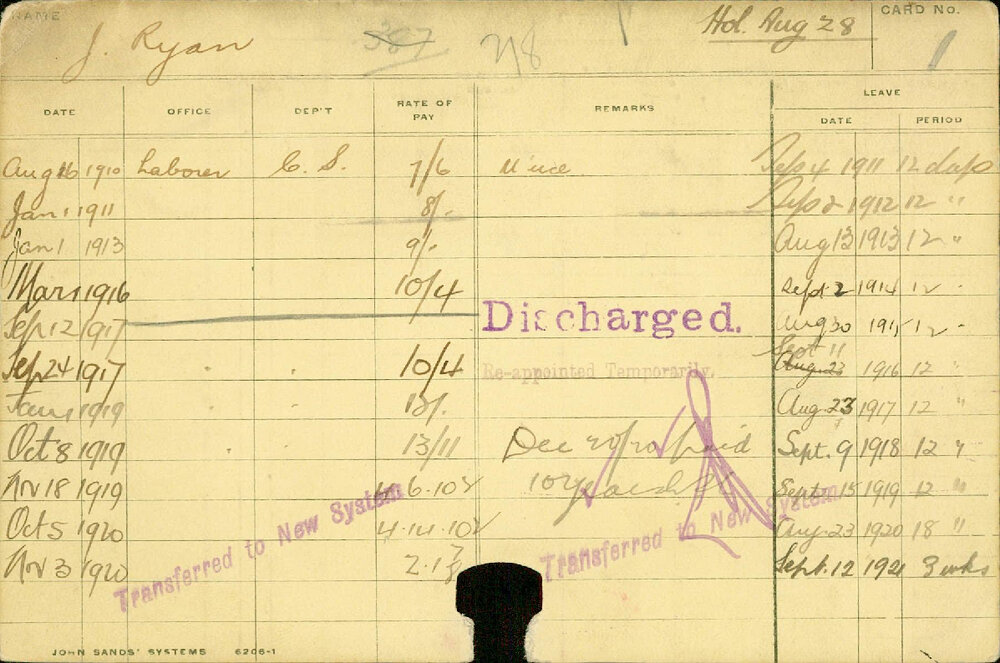 NAME J. Ryan 387 Hol. Aug 28 CARD No. 1
LEAVE
DATE OFFICE DEP'T RATE OF PAY REMARKS DATE PERIOD
Aug 16 1910 Laborer C. S. 7/6 Sep 4 1911 12 days
Jan 1 1911 8/- Sep 2 1912 12 "
Jan 1 1913 9/- Aug 13 1913 12 "
Mar 1 1916 10/4 Sept 2 1914 12 "
Sep 12 1917 Discharged. Aug 30 1915 12 "
Sept 11
Sep 24 1917 10/4 Re-appointed Temporarily. Aug 23 1916 12 "
Jan 1 1919 12/- Aug. 23 1917 12 "
Oct 8 1919 13/11 Dec paid Sept. 9 1918 12 "
Nov 18 1919 6.10 Sept 15 1919 12 "
Oct 5 1920 4.14.10 Aug. 23 1920 18 "
Nov 3 1920 2.17 Sept. 12 1921 3 wks
Transferred to New System Transferred to New System
JOHN SANDS' SYSTEMS 6206-1